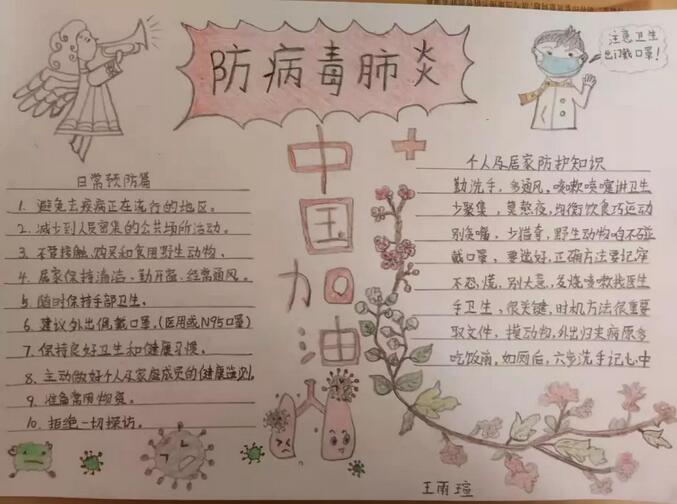 防病毒肺炎
注意卫生
出门戴口罩!
中国加油
日常预防篇
1. 避免去疾病正在流行的地区。
2. 减少到人员密集的公共场所活动。
3. 不要接触、购买和食用野生动物、
4. 居家保持清洁、勤开窗、经常通风。
5. 随时保持手部卫生。
6. 建议外出佩戴口罩。(医用或N95口罩)
7. 保持良好卫生和健康习惯。
8. 主动做好个人及家庭成员的健康监测。
9. 准备常用物资。
10. 拒绝一切探访。
个人及居家防护知识
勤洗手，多通风，咳嗽喷嚏讲卫生
少聚集，莫熬夜，均衡饮食巧运动
别贪嘴，少猎奇，野生动物咱不碰
戴口罩，要选好，正确方法要记牢
不恐慌，别大意，发烧咳嗽找医生
手卫生，很关键，时机方法很重要
取文件，摸动物，外出归来病原多
吃饭前，如厕后，六步洗手记心中
王雨瑄